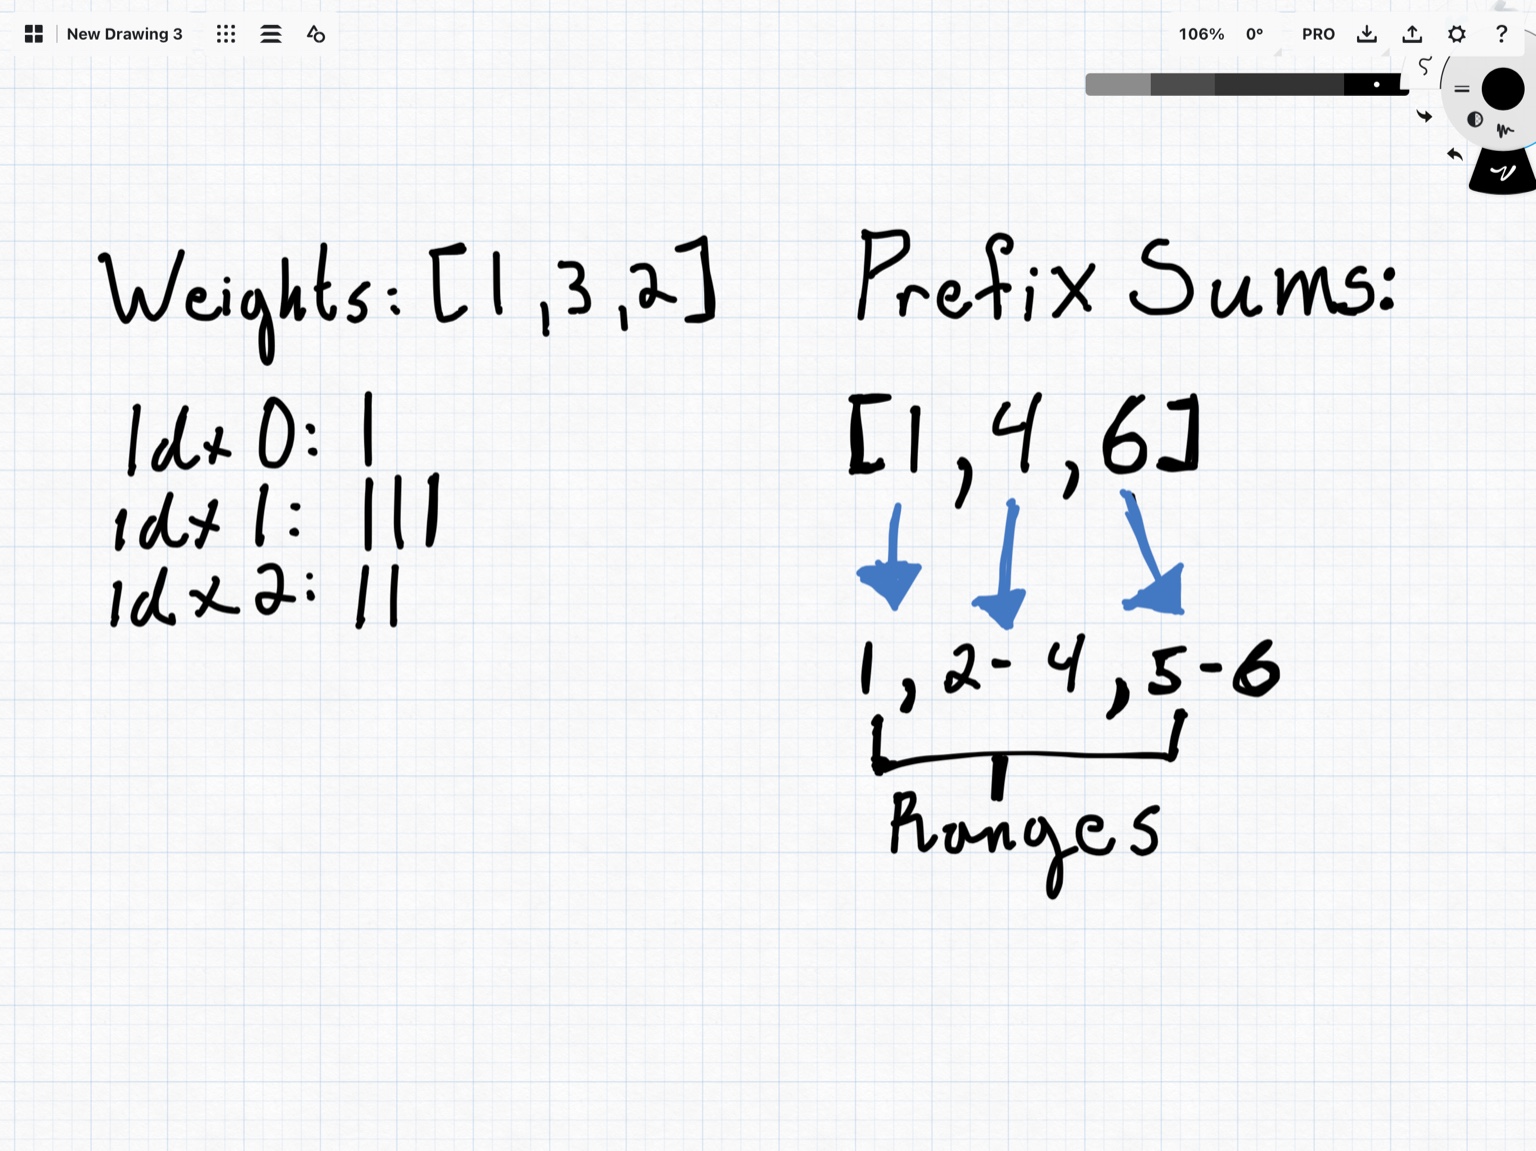 New Drawing 3
106% 0° PRO ?
Weights: [1,3,2]
Idx 0: |
Idx 1: |||
Idx 2: ||
Prefix Sums:
[1, 4, 6]
1, 2-4, 5-6
Ranges